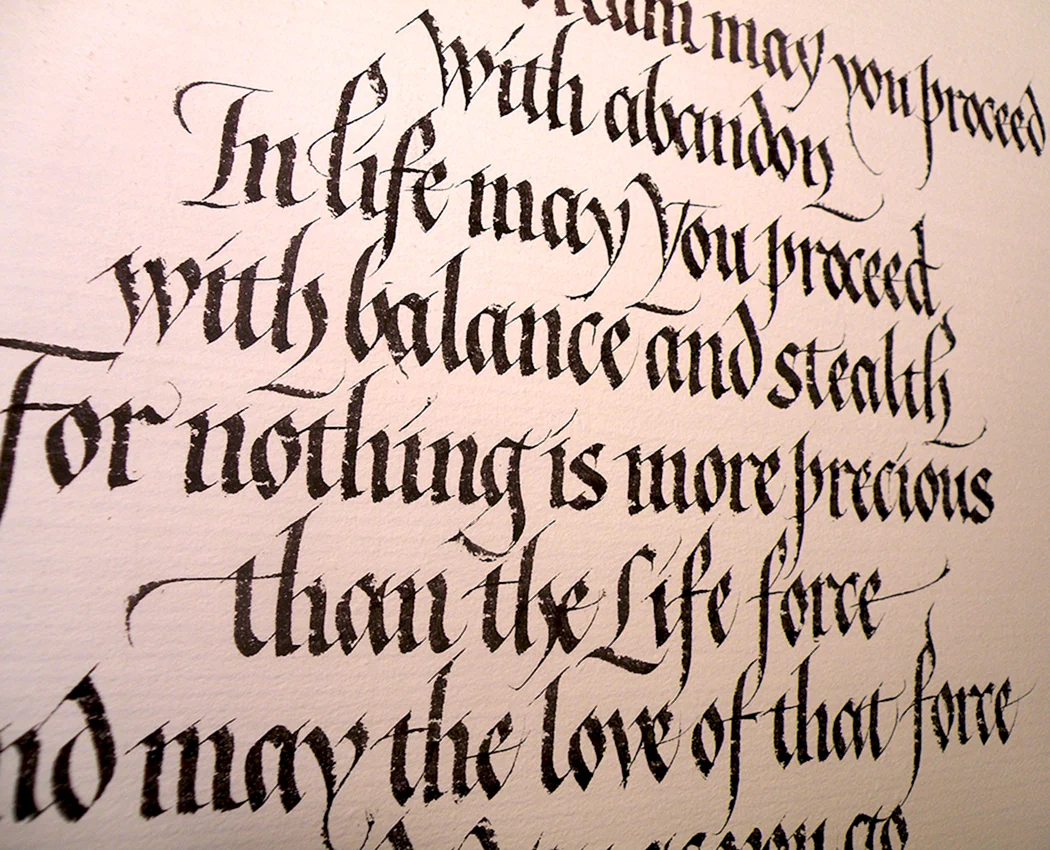 may you proceed
with abandon
In life may you proceed
with balance and stealth
For nothing is more precious
than the Life force
may the love of that force
you